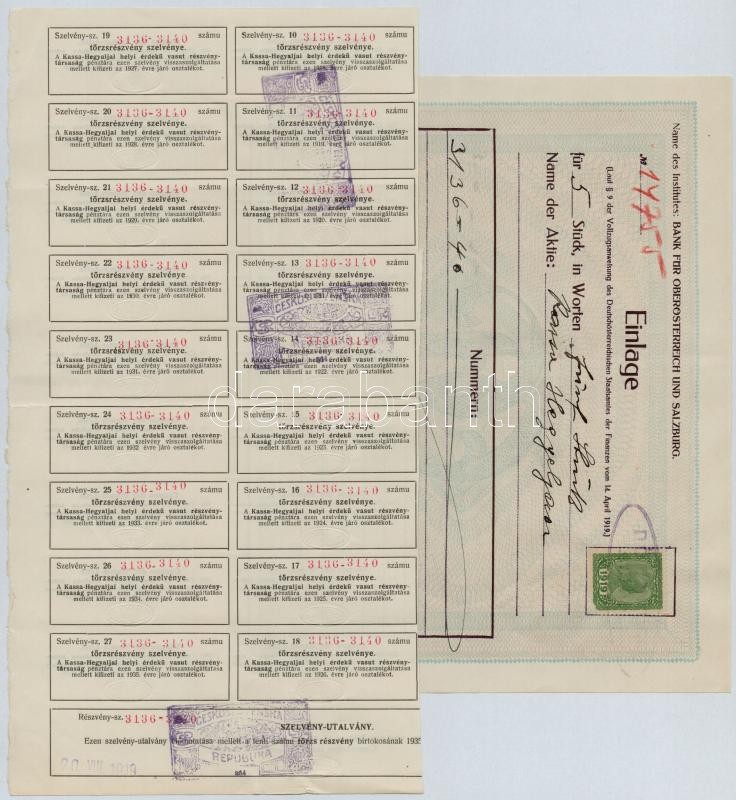 Szelvény-sz. 19 3136-3140 számu
törzsrészvény szelvénye.
A Kassa-Hegyaljai helyi érdekü vasut részvény-
társaság pénztára ezen szelvény visszaszolgáltatása
mellett kifizeti az 1927. évre járó osztalékot.
Szelvény-sz. 10 3136-3140 számu
törzsrészvény szelvénye.
A Kassa-Hegyaljai helyi érdekü vasut részvény-
társaság pénztára ezen szelvény visszaszolgáltatása
mellett kifizeti az 1918. évre járó osztalékot.
Szelvény-sz. 20 3136-3140 számu
törzsrészvény szelvénye.
A Kassa-Hegyaljai helyi érdekü vasut részvény-
társaság pénztára ezen szelvény visszaszolgáltatása
mellett kifizeti az 1928. évre járó osztalékot.
Szelvény-sz. 11 3136-3140 számu
törzsrészvény szelvénye.
A Kassa-Hegyaljai helyi érdekü vasut részvény-
társaság pénztára ezen szelvény visszaszolgáltatása
mellett kifizeti az 1919. évre járó osztalékot.
Szelvény-sz. 21 3136-3140 számu
törzsrészvény szelvénye.
A Kassa-Hegyaljai helyi érdekü vasut részvény-
társaság pénztára ezen szelvény visszaszolgáltatása
mellett kifizeti az 1929. évre járó osztalékot.
Szelvény-sz. 12 3136-3140 számu
törzsrészvény szelvénye.
A Kassa-Hegyaljai helyi érdekü vasut részvény-
társaság pénztára ezen szelvény visszaszolgáltatása
mellett kifizeti az 1920. évre járó osztalékot.
Szelvény-sz. 22 3136-3140 számu
törzsrészvény szelvénye.
A Kassa-Hegyaljai helyi érdekü vasut részvény-
társaság pénztára ezen szelvény visszaszolgáltatása
mellett kifizeti az 1930. évre járó osztalékot.
Szelvény-sz. 13 3136-3140 számu
törzsrészvény szelvénye.
A Kassa-Hegyaljai helyi érdekü vasut részvény-
társaság pénztára ezen szelvény visszaszolgáltatása
mellett kifizeti az 1921. évre járó osztalékot.
Szelvény-sz. 23 3136-3140 számu
törzsrészvény szelvénye.
A Kassa-Hegyaljai helyi érdekü vasut részvény-
társaság pénztára ezen szelvény visszaszolgáltatása
mellett kifizeti az 1931. évre járó osztalékot.
Szelvény-sz. 14 3136-3140 számu
törzsrészvény szelvénye.
A Kassa-Hegyaljai helyi érdekü vasut részvény-
társaság pénztára ezen szelvény visszaszolgáltatása
mellett kifizeti az 1922. évre járó osztalékot.
Szelvény-sz. 24 3136-3140 számu
törzsrészvény szelvénye.
A Kassa-Hegyaljai helyi érdekü vasut részvény-
társaság pénztára ezen szelvény visszaszolgáltatása
mellett kifizeti az 1932. évre járó osztalékot.
Szelvény-sz. 15 3136-3140 számu
törzsrészvény szelvénye.
A Kassa-Hegyaljai helyi érdekü vasut részvény-
társaság pénztára ezen szelvény visszaszolgáltatása
mellett kifizeti az 1923. évre járó osztalékot.
Szelvény-sz. 25 3136-3140 számu
törzsrészvény szelvénye.
A Kassa-Hegyaljai helyi érdekü vasut részvény-
társaság pénztára ezen szelvény visszaszolgáltatása
mellett kifizeti az 1933. évre járó osztalékot.
Szelvény-sz. 16 3136-3140 számu
törzsrészvény szelvénye.
A Kassa-Hegyaljai helyi érdekü vasut részvény-
társaság pénztára ezen szelvény visszaszolgáltatása
mellett kifizeti az 1924. évre járó osztalékot.
Szelvény-sz. 26 3136-3140 számu
törzsrészvény szelvénye.
A Kassa-Hegyaljai helyi érdekü vasut részvény-
társaság pénztára ezen szelvény visszaszolgáltatása
mellett kifizeti az 1934. évre járó osztalékot.
Szelvény-sz. 17 3136-3140 számu
törzsrészvény szelvénye.
A Kassa-Hegyaljai helyi érdekü vasut részvény-
társaság pénztára ezen szelvény visszaszolgáltatása
mellett kifizeti az 1925. évre járó osztalékot.
Szelvény-sz. 27 3136-3140 számu
törzsrészvény szelvénye.
A Kassa-Hegyaljai helyi érdekü vasut részvény-
társaság pénztára ezen szelvény visszaszolgáltatása
mellett kifizeti az 1935. évre járó osztalékot.
Szelvény-sz. 18 3136-3140 számu
törzsrészvény szelvénye.
A Kassa-Hegyaljai helyi érdekü vasut részvény-
társaság pénztára ezen szelvény visszaszolgáltatása
mellett kifizeti az 1926. évre járó osztalékot.
Részvény-sz. 3136-3140
SZELVÉNY-UTALVÁNY.
Ezen szelvény-utalvány felmutatása mellett a fenti számu törzs részvény birtokosának 1935
REPUBLIKA
864
20 VIII 1919
Name des Institutes: BANK FÜR OBERÖSTERREICH UND SALZBURG.
№ 14755
Einlage
(Laut § 9 der Vollzugsanweisung des Deutschösterreichischen Staatsamtes der Finanzen vom 14. April 1919.)
für 5 Stück, in Worten fünf Stück
Name der Aktie: Kassa Hegyeljaer
Nummern:
3136-40
darabanth